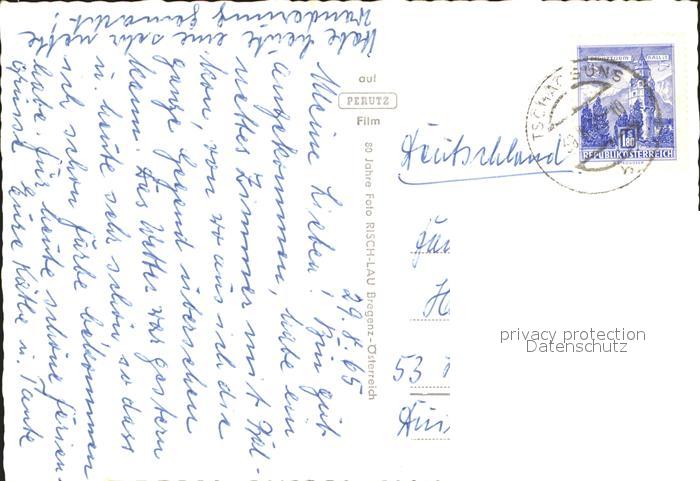 Habe heute eine sehr nette
Wanderung gemacht!
29.8.65
Meine Lieben! Bin gut
angekommen, habe ein
nettes Zimmer mit Bal-
kon, von wo aus ich die
ganze Gegend übersehen
kann. Das Wetter war gestern
u. heute sehr schön so dass
ich schon Farbe bekommen
habe. Für heute schöne Ferien-
grüsse Eure Käthe u. Tante
auf
PERUTZ
Film
80 Jahre Foto RISCH-LAU Bregenz-Österreich
TSCHAGGUNS
1.80
REPUBLIK ÖSTERREICH
Deutschland
53
privacy protection
Datenschutz